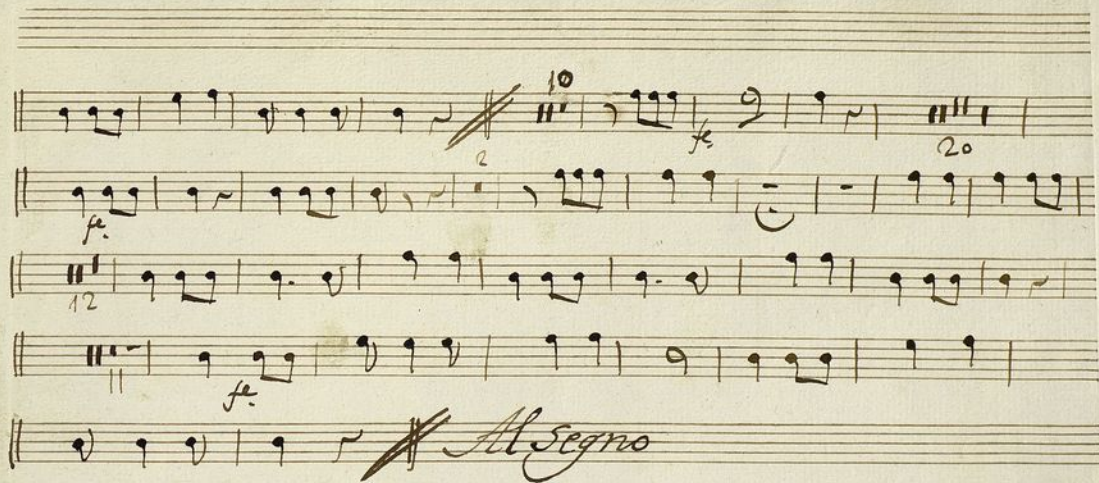 10
fe.
20
2
fe.
12
11
fe.
Al Segno